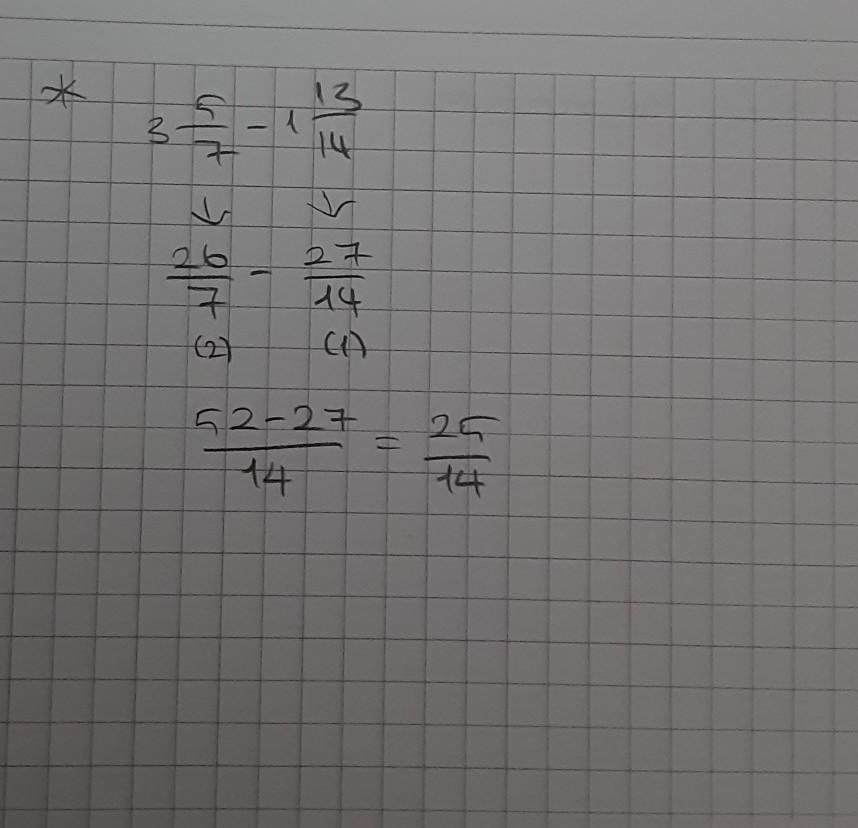 * 3 5/7 - 1 13/14
↓ ↓
26/7 - 27/14
(2) (1)
52-27/14 = 25/14